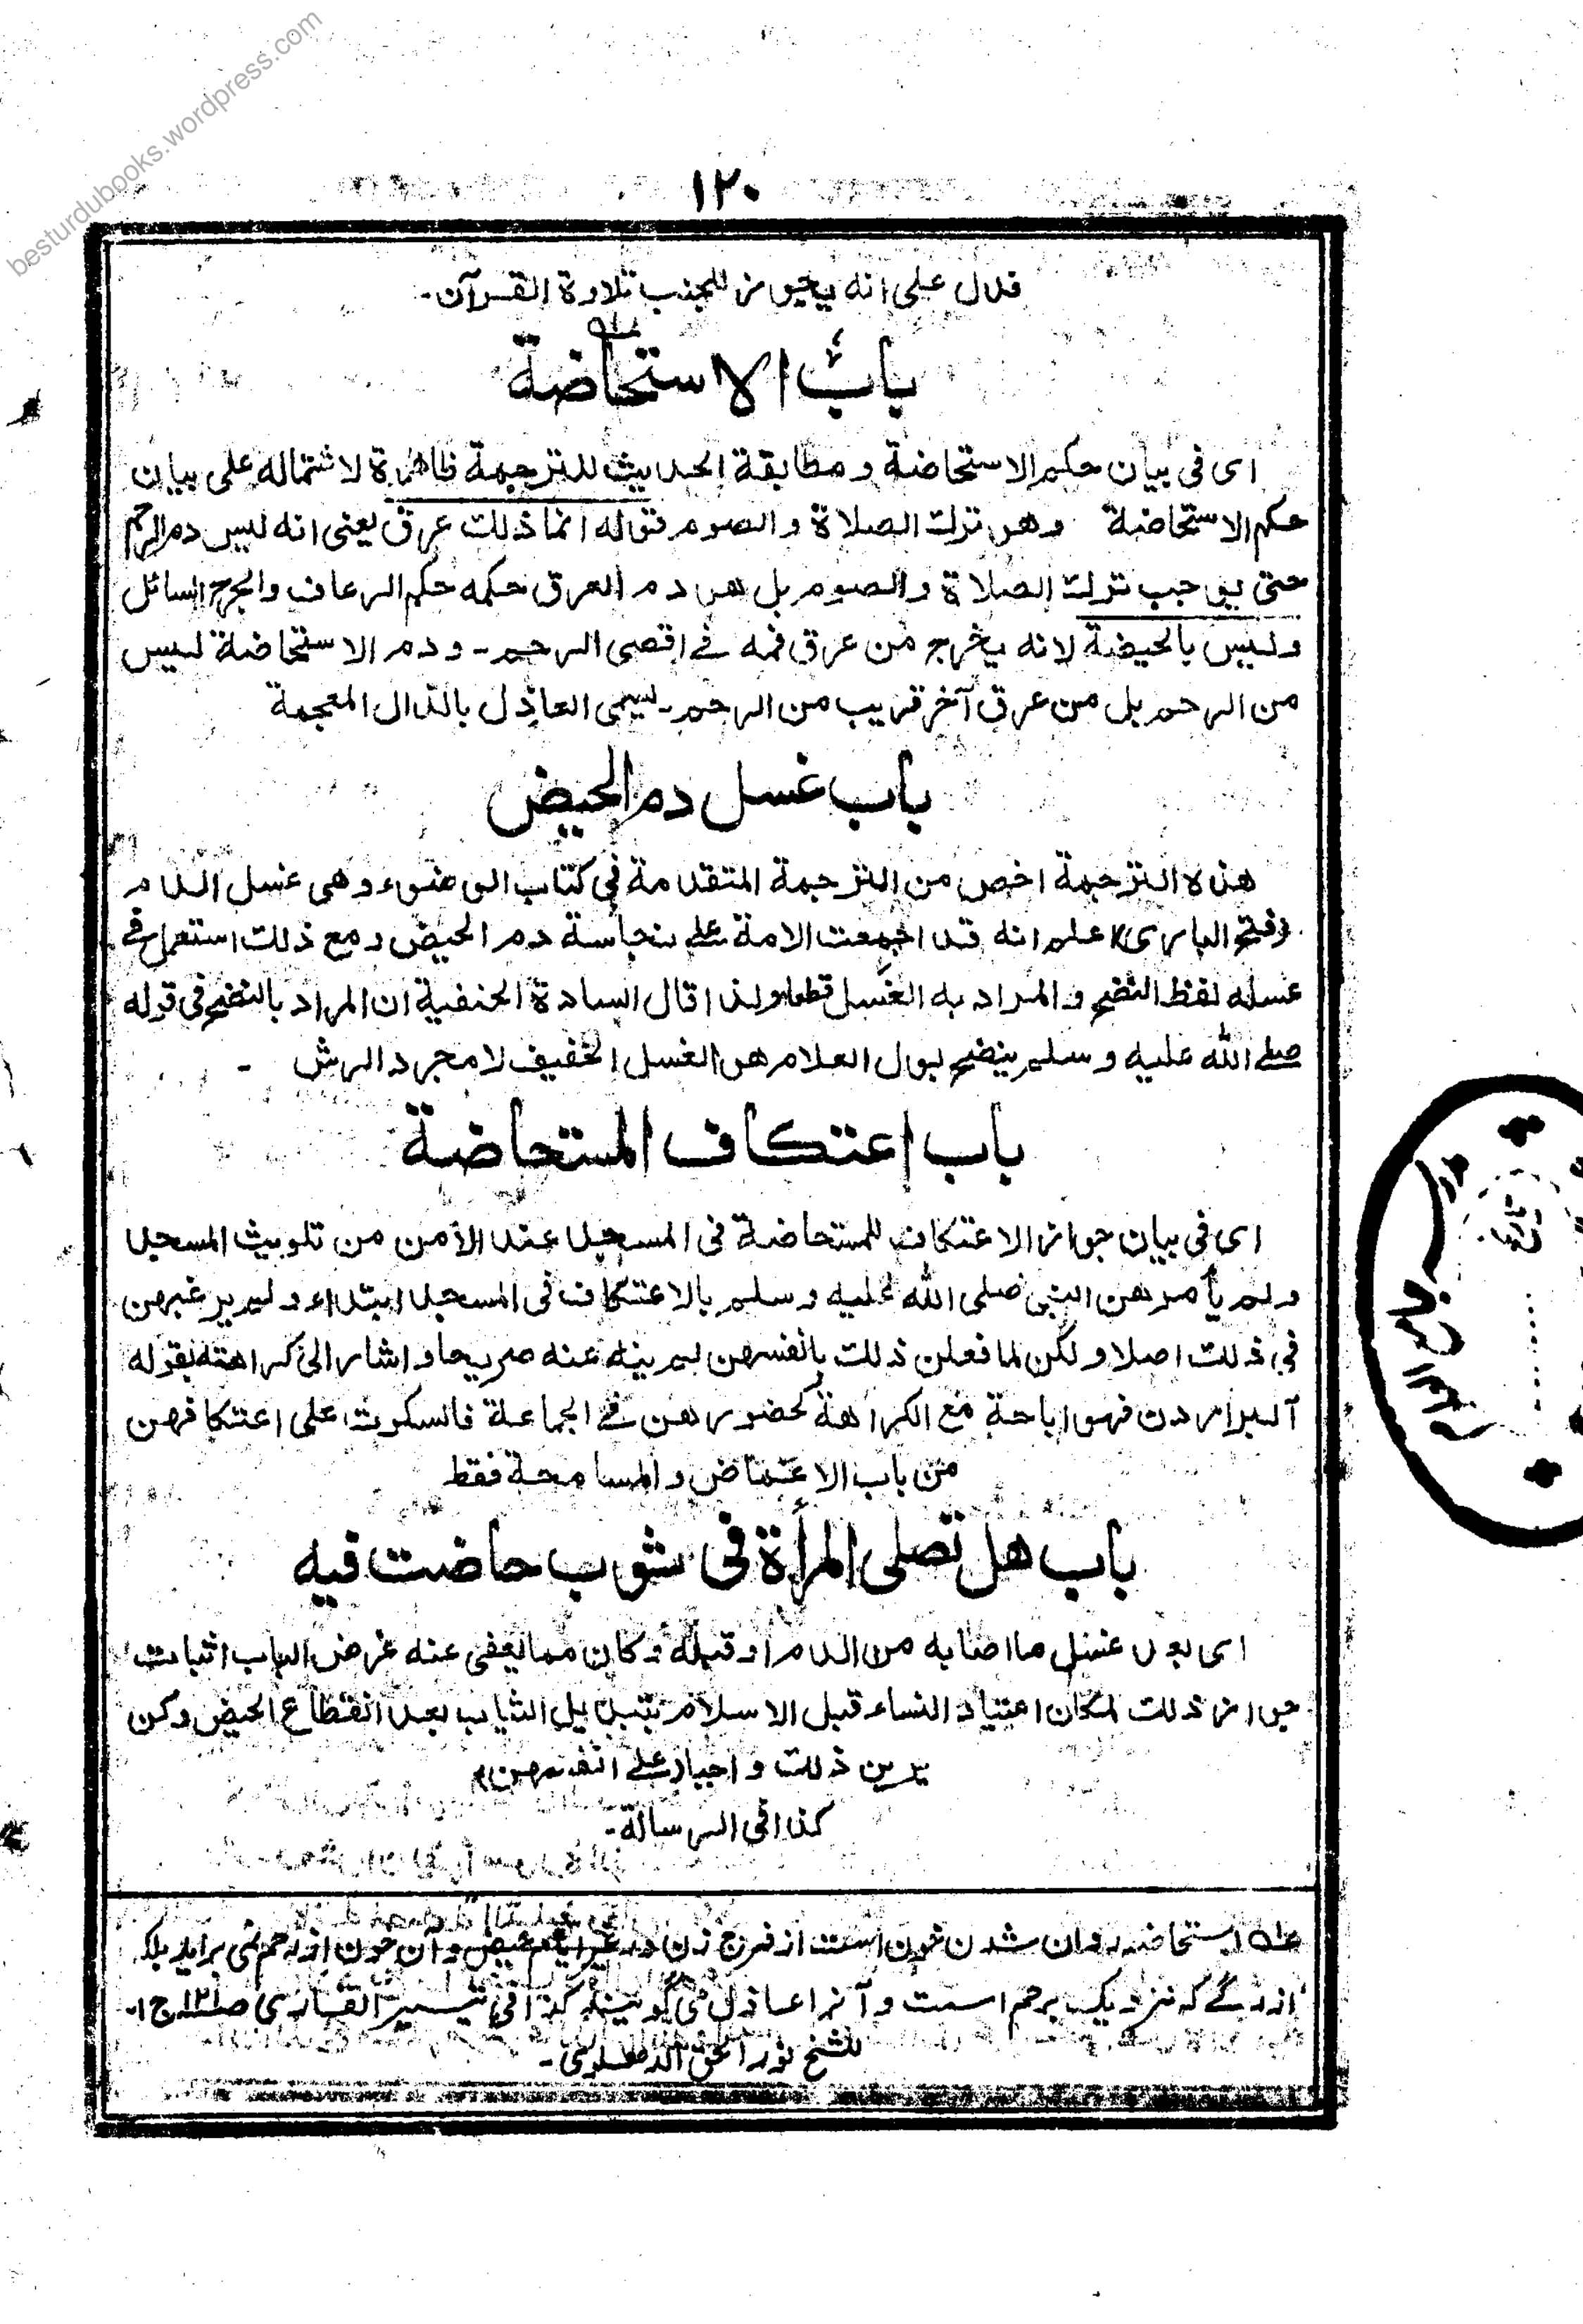 besturdubooks.wordpress.com
١٢٠
فدل على انه يجوز للجنب تلاوة القرآن۔
باب الاستحاضة
اى فى بيان حكم الاستحاضة ومطابقة الحديث للترجمة ظاهرة لاشتماله على بيان
حكم الاستحاضة وهو ترك الصلاة والصوم فقوله انما ذلك عرق يعنى انه ليس دم الرحم
حتى يوجب ترك الصلاة والصوم بل هو دم العرق حكمه حكم الرعاف والجرح السائل
وليس بالحيضة لانه يخرج من عرق فمه فى اقصى الرحم۔ ودم الاستحاضة ليس
من الرحم بل من عرق آخر قريب من الرحم۔ يسمى العاذل بالذال المعجمة
باب غسل دم الحيض
هذه الترجمة اخص من الترجمة المتقدمة فى كتاب الوضوء وهى غسل الدم
(فتح البارى) اعلم انه قد اجمعت الامة على نجاسة دم الحيض ومع ذلك استعمل فى
غسله لفظ النضح والمراد به الغسل قطعا ولذا قال السادة الحنفية ان المراد بالنضح فى قوله
صلى الله عليه وسلم ينضح بول الغلام هو الغسل الخفيف لا مجرد الرش ۔
باب اعتكاف المستحاضة
اى فى بيان جواز الاعتكاف للمستحاضة فى المسجد عند الأمن من تلويث المسجد
ولم يأمرهن النبى صلى الله عليه وسلم بالاعتكاف فى المسجد ابتداء ولم يرغبهن
فى ذلك اصلا ولكن لما فعلن ذلك بانفسهن لم ينه عنه صريحا واشار الى كراهته بقوله
آلبر اردن فهو اباحة مع الكراهة كحضورهن فى الجماعة فالسكوت على اعتكافهن
من باب الاغتماض والمسامحة فقط
باب هل تصلى المرأة فى ثوب حاضت فيه
اى بعد غسل ما اصابه من الدم او قبله وكان مما يعفى عنه غرض الباب اثبات
جواز ذلك لمكان اعتياد النساء قبل الاسلام بتبديل الثياب بعد انقطاع الحيض وكن
يرين ذلك واجبا على انفسهن
كذا فى الرسالة۔
عه استحاضه روان شدن خون است از فرج زن در غير ايام حيض وآن خون از رحم نمى برايد بلكه
از رگے كه نزديک برحم است وآنرا عاذل مى گويند كذا فى تيسير القارى ص١٢١ ج١۔
للشيخ نور الحق الدهلوى۔